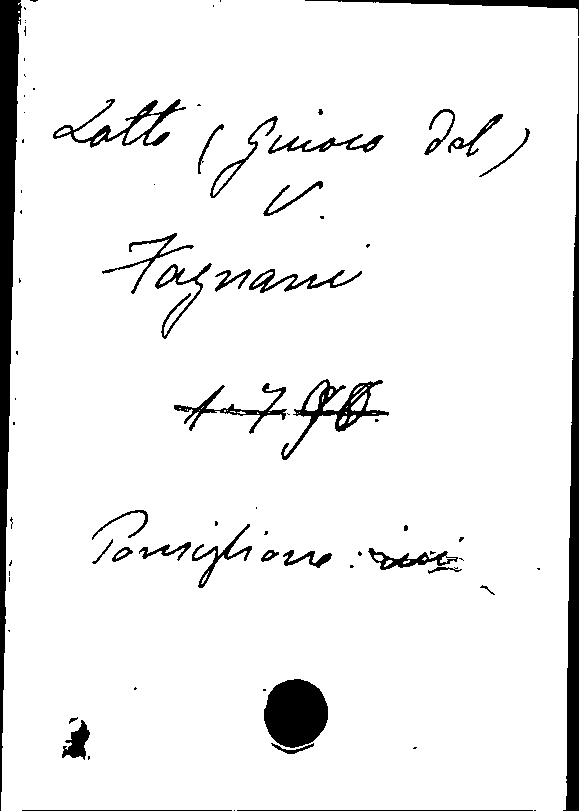 Lotto (Giuoco del)
V.
Fagnani
1.7.90.
Ponsiglione